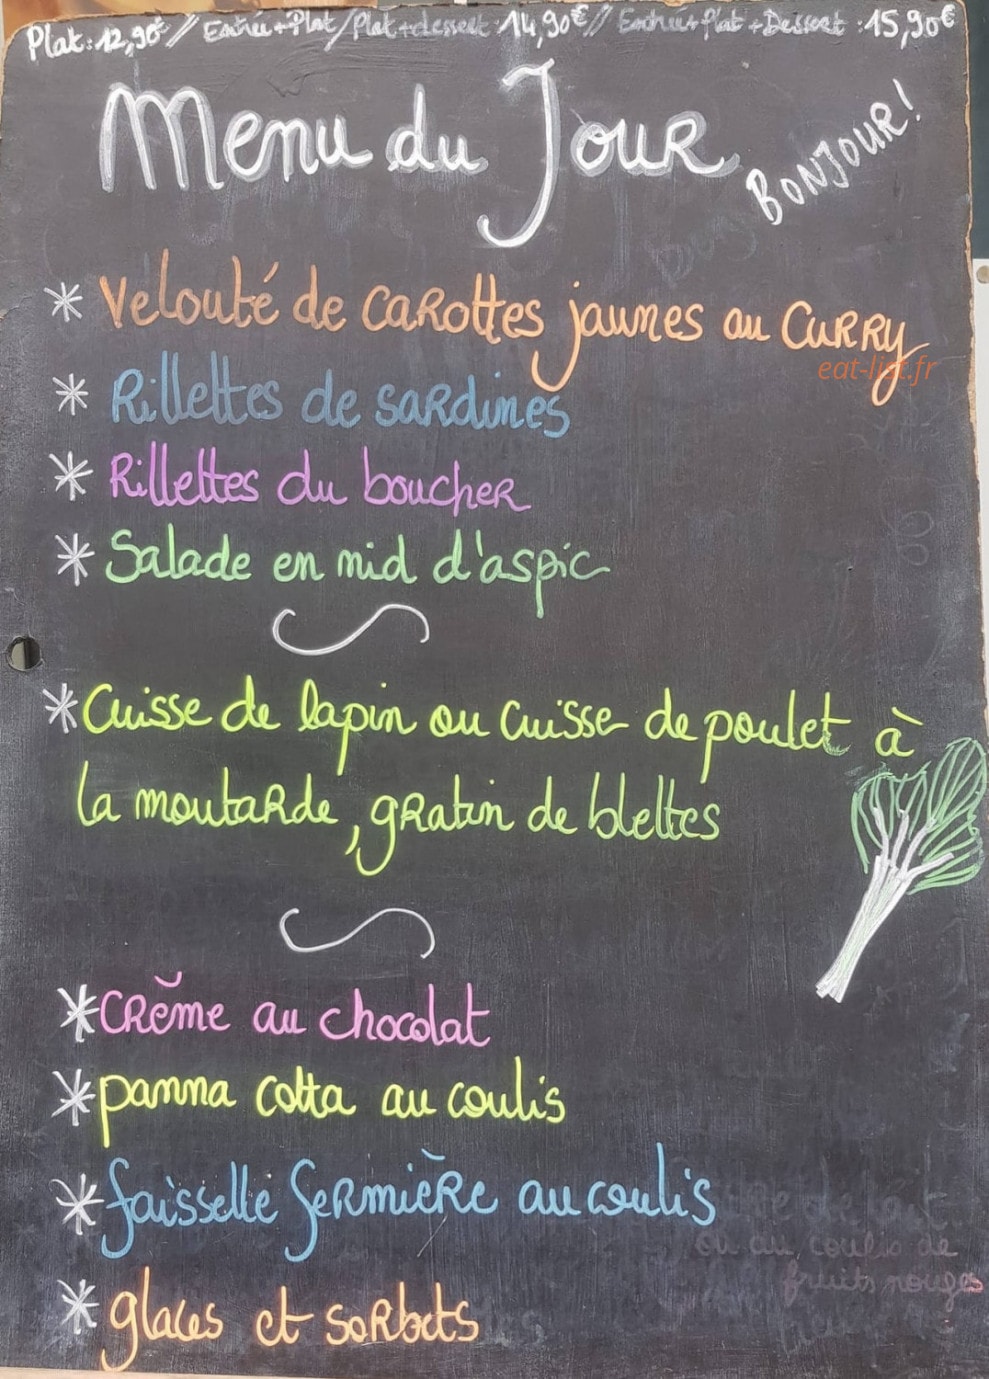 Plat: 12,90€ // Entrée+Plat/Plat+dessert: 14,90€ // Entrée+Plat+Dessert: 15,90€
Menu du Jour
BONJOUR!
* Velouté de carottes jaunes au curry
eat-list.fr
* Rillettes de sardines
* Rillettes du boucher
* Salade en nid d'aspic
* Cuisse de lapin ou cuisse de poulet à
la moutarde, gratin de blettes
* Crème au chocolat
* panna cotta au coulis
* faisselle fermière au coulis
ou au coulis de
fruits rouges
* glaces et sorbets